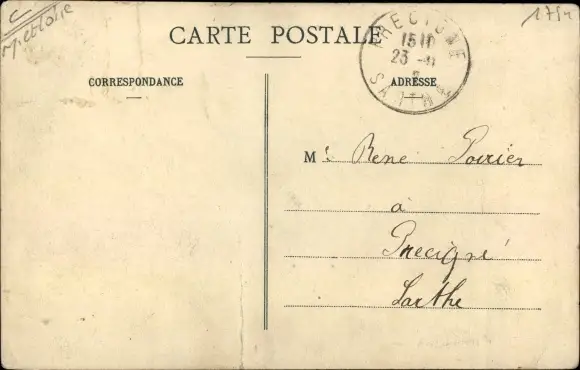 C
CARTE POSTALE
CORRESPONDANCE
ADRESSE
PRECIGNE
15 11
23 -11
SARTHE
M. René Poirier
à
Précigné
Sarthe